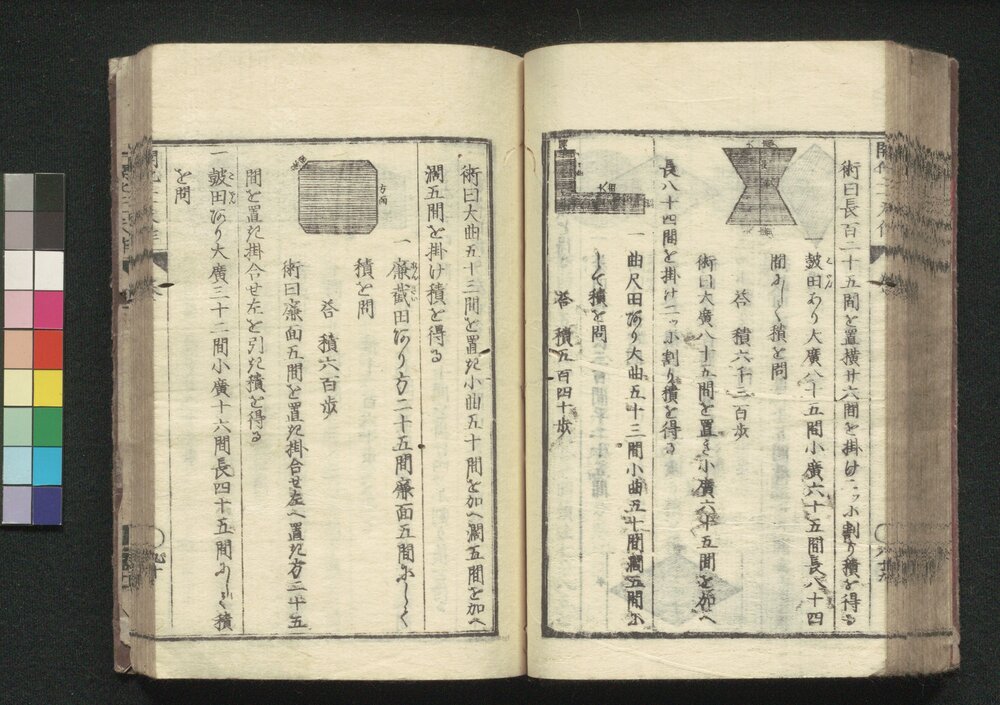 術曰長百二十五間を置横廾六間を掛け二ッに割り積を得る
皷田あり大廣八十五間小廣六十五間長八十四
間にして積を問
答 積六千三百歩
術曰大廣八十五間を置き小廣六十五間を加へ
長八十四間を掛け二ッに割り積を得る
一 曲尺田あり大曲五十三間小曲五十間濶五間に
して積を問
答 積五百四十歩
術曰大曲五十三間を置き小曲五十間を加へ濶五間を加へ
濶五間を掛け積を得る
方面
一 廉截田あり方二十五間廉面五間にして
積を問
答 積六百歩
術曰廉面五間を置き掛合せ左へ置き方二十五
間を置き掛合せ左を引き積を得る
一 皷田あり大廣三十二間小廣十六間長四十五間にして積
を問